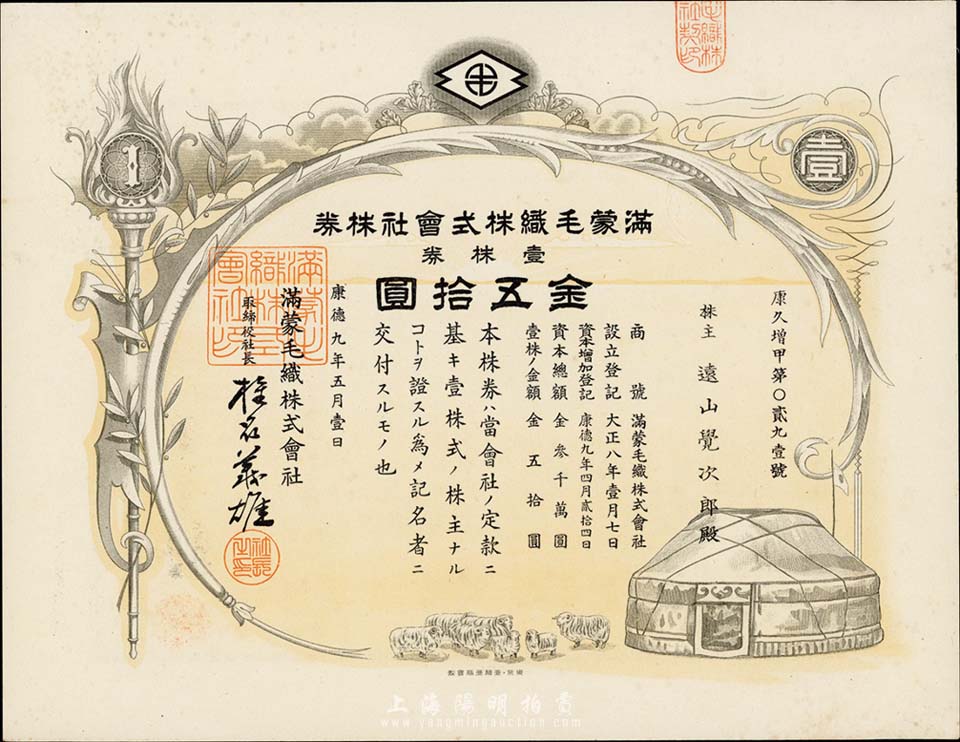 壹
1
滿蒙毛織株式會社株券
壹株券
金五拾圓
康久增甲第〇貳九壹號
株主 遠山覺次郎殿
商號 滿蒙毛織株式會社
設立登記 大正八年壹月七日
資本增加登記 康德九年四月貳拾四日
資本總額 金參千萬圓
壹株ノ金額 金五拾圓
本株券ハ當會社ノ定款ニ
基キ壹株式ノ株主ナル
コトヲ證スル爲メ記名者ニ
交付スルモノ也
康德九年五月壹日
滿蒙毛織株式會社
取締役社長 椎名義雄
滿蒙毛織株式會社印
社長之印
上海陽明拍賣
www.yangmingauction.com